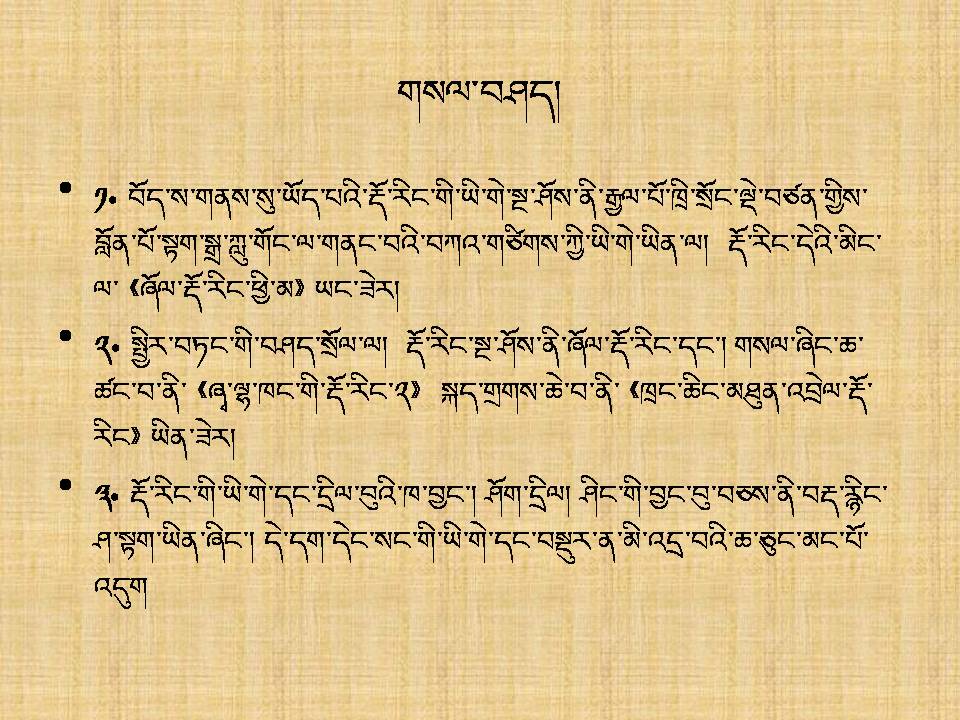 གསལ་བཤད།
• ༡. བོད་ས་གནས་སུ་ཡོད་པའི་རྡོ་རིང་གི་ཡི་གེ་སྔ་ཤོས་ནི་རྒྱལ་པོ་ཁྲི་སྲོང་ལྡེ་བཙན་གྱིས་
བློན་པོ་སྟག་སྒྲ་ཀླུ་གོང་ལ་གནང་བའི་བཀའ་གཙིགས་ཀྱི་ཡི་གེ་ཡིན་ལ།  རྡོ་རིང་དེའི་མིང་
ལ་《ཞོལ་རྡོ་རིང་ཕྱི་མ》ཡང་ཟེར།
• ༢. སྤྱིར་བཏང་གི་བཤད་སྲོལ་ལ།  རྡོ་རིང་སྔ་ཤོས་ནི་ཞོལ་རྡོ་རིང་དང་། གསལ་ཞིང་ཆ་
ཚང་བ་ནི་《ཞྭ་ལྷ་ཁང་གི་རྡོ་རིང་༢》 སྐད་གྲགས་ཆེ་བ་ནི་《ཁྲང་ཆིང་མཐུན་འབྲེལ་རྡོ་
རིང》ཡིན་ཟེར།
• ༣. རྡོ་རིང་གི་ཡི་གེ་དང་དྲིལ་བུའི་ཁ་བྱང་། ཤོག་དྲིལ། ཤིང་གི་བྱང་བུ་བཅས་ནི་བརྡ་རྙིང་
ཤ་སྟག་ཡིན་ཞིང་། དེ་དག་དེང་སང་གི་ཡི་གེ་དང་བསྡུར་ན་མི་འདྲ་བའི་ཆ་ཅུང་མང་པོ་
འདུག